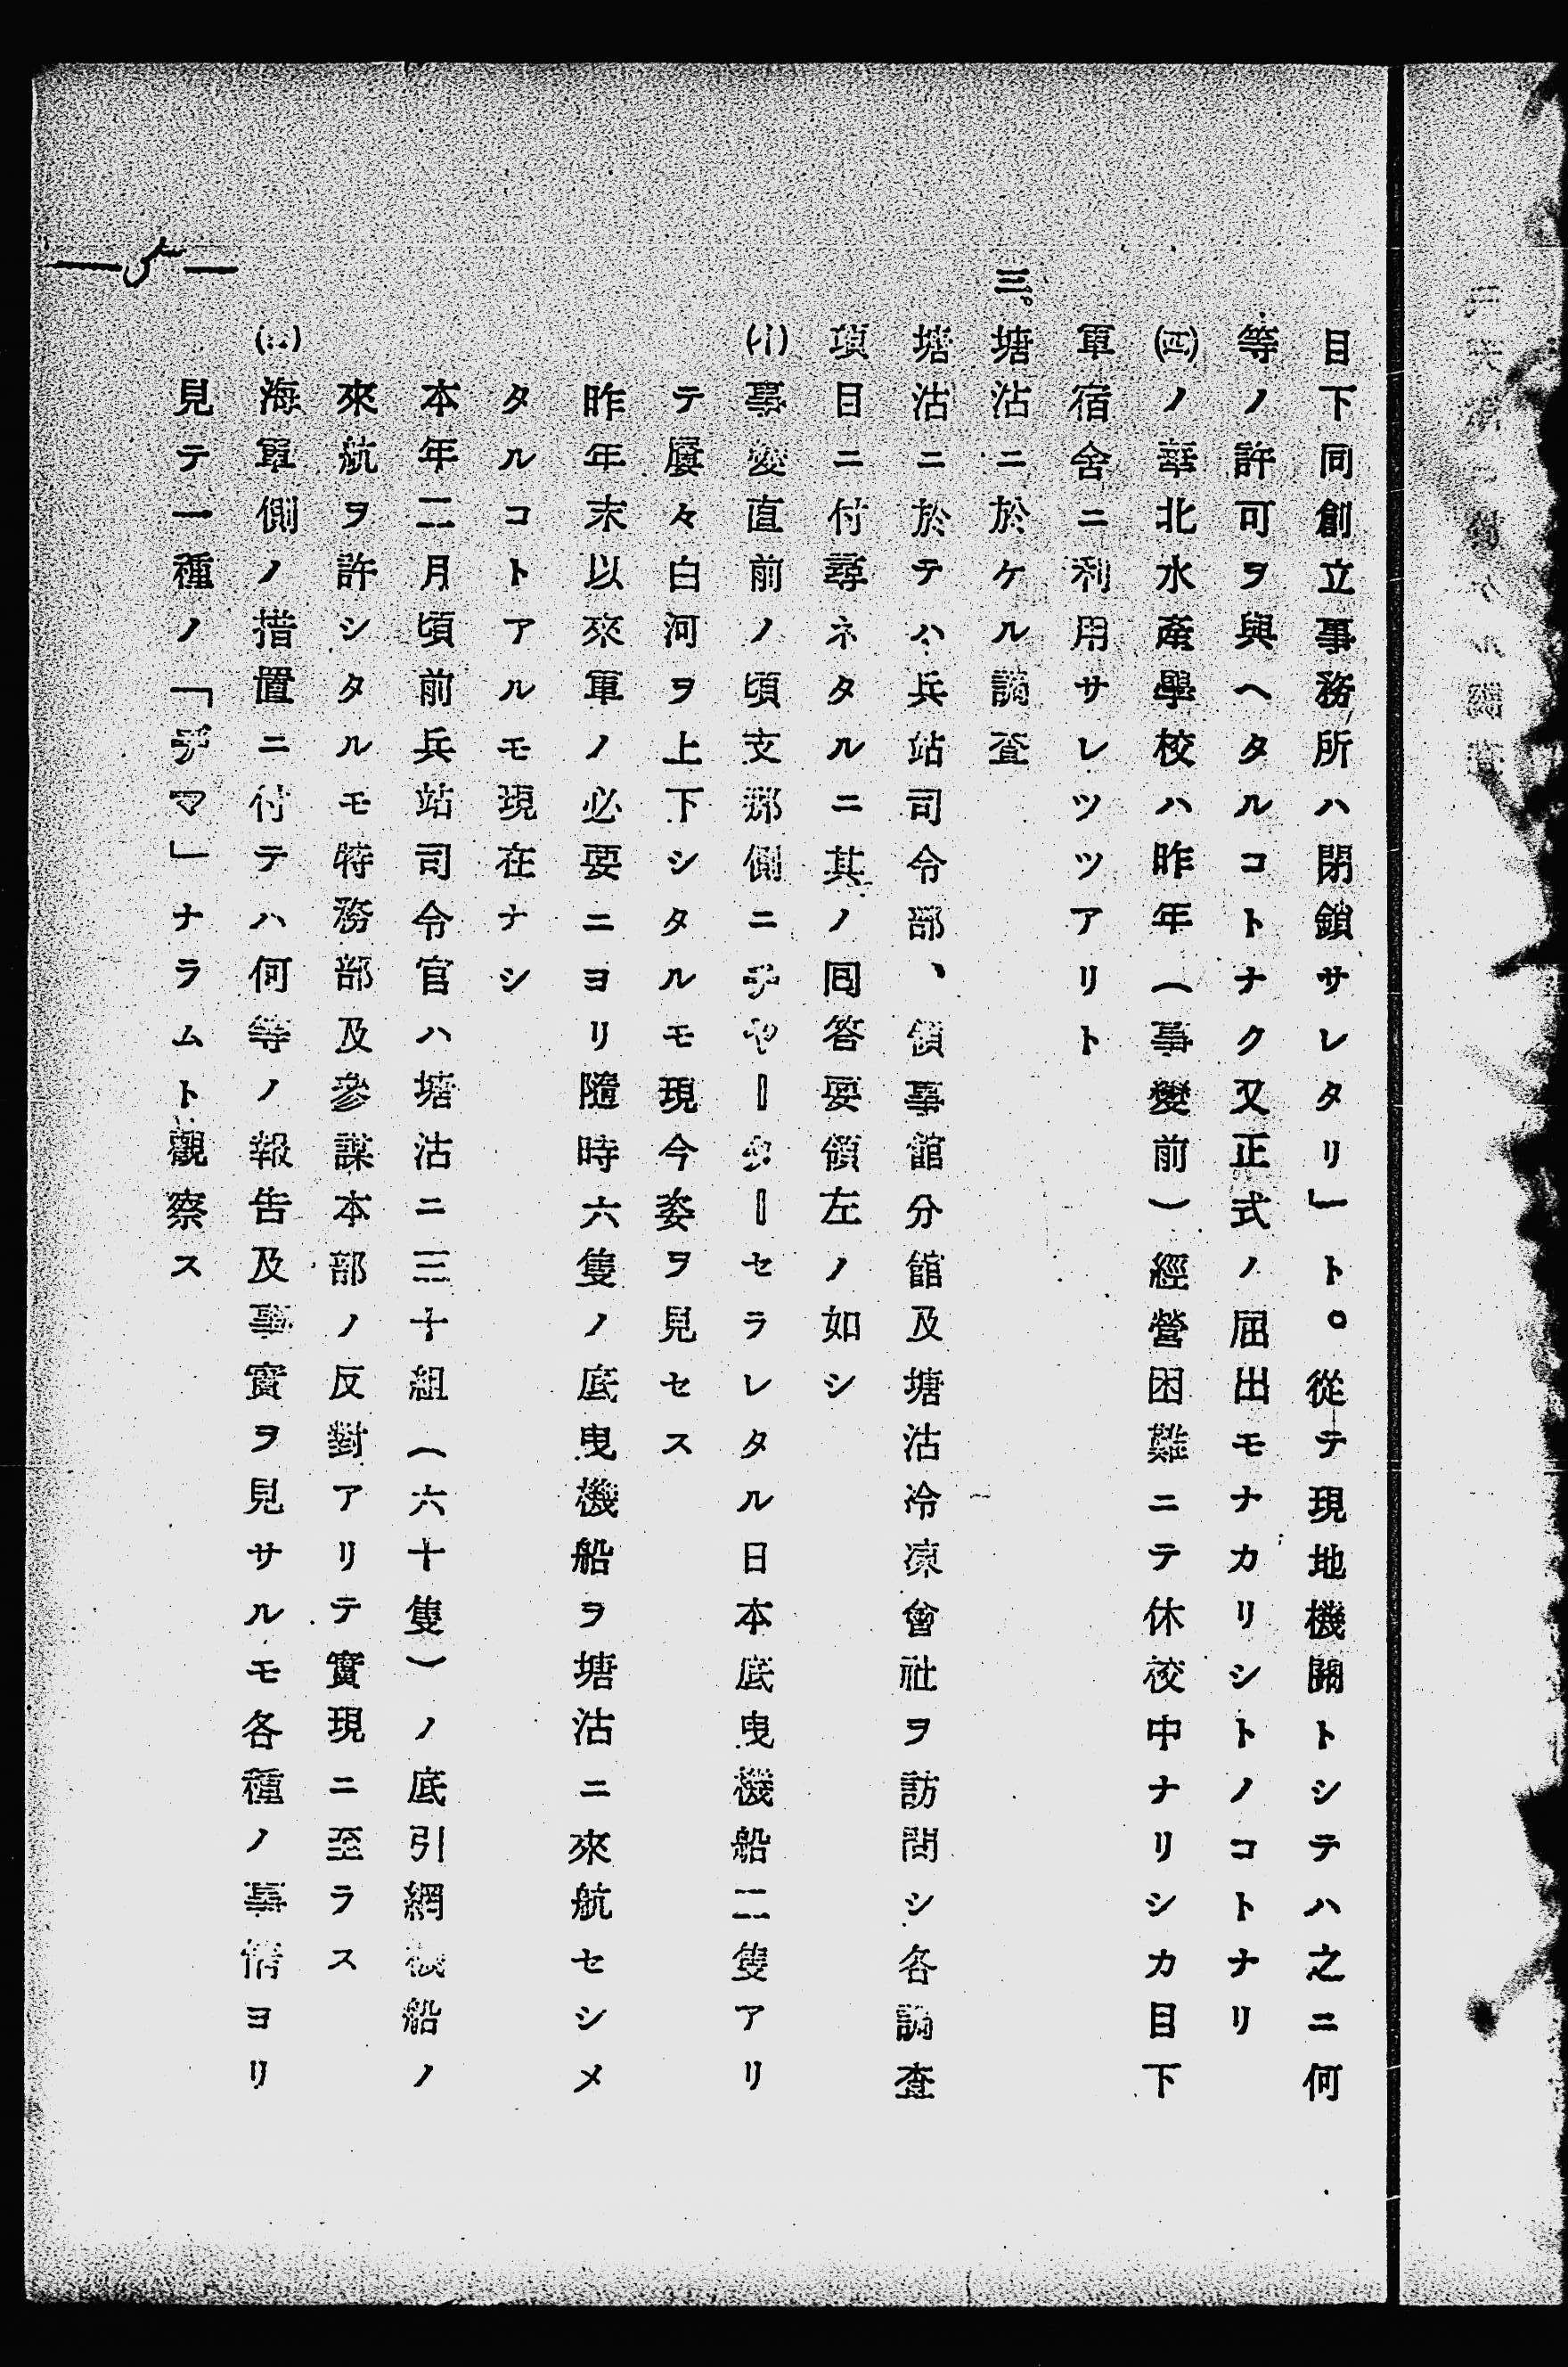 目下同創立事務所ハ閉鎖サレタリ」ト。從テ現地機關トシテハ之ニ何
等ノ許可ヲ與ヘタルコトナク又正式ノ屆出モナカリシトノコトナリ
㈣ノ華北水產學校ハ昨年(事變前)經營困難ニテ休校中ナリシカ目下
軍宿舍ニ利用サレツツアリト
三。塘沽ニ於ケル調査
塘沽ニ於テハ兵站司令部、領事館分館及塘沽冷凍會社ヲ訪問シ各調査
項目ニ付尋ネタルニ其ノ回答要領左ノ如シ
(イ)事變直前ノ頃支那側ニチヤーターセラレタル日本底曳機船二隻アリ
テ屢々白河ヲ上下シタルモ現今姿ヲ見セス
昨年末以來軍ノ必要ニヨリ隨時六隻ノ底曳機船ヲ塘沽ニ來航セシメ
タルコトアルモ現在ナシ
本年二月頃前兵站司令官ハ塘沽ニ三十組(六十隻)ノ底引網機船ノ
來航ヲ許シタルモ特務部及參謀本部ノ反對アリテ實現ニ至ラス
(ロ)海軍側ノ措置ニ付テハ何等ノ報告及事實ヲ見サルモ各種ノ事情ヨリ
見テ一種ノ「デマ」ナラムト觀察ス